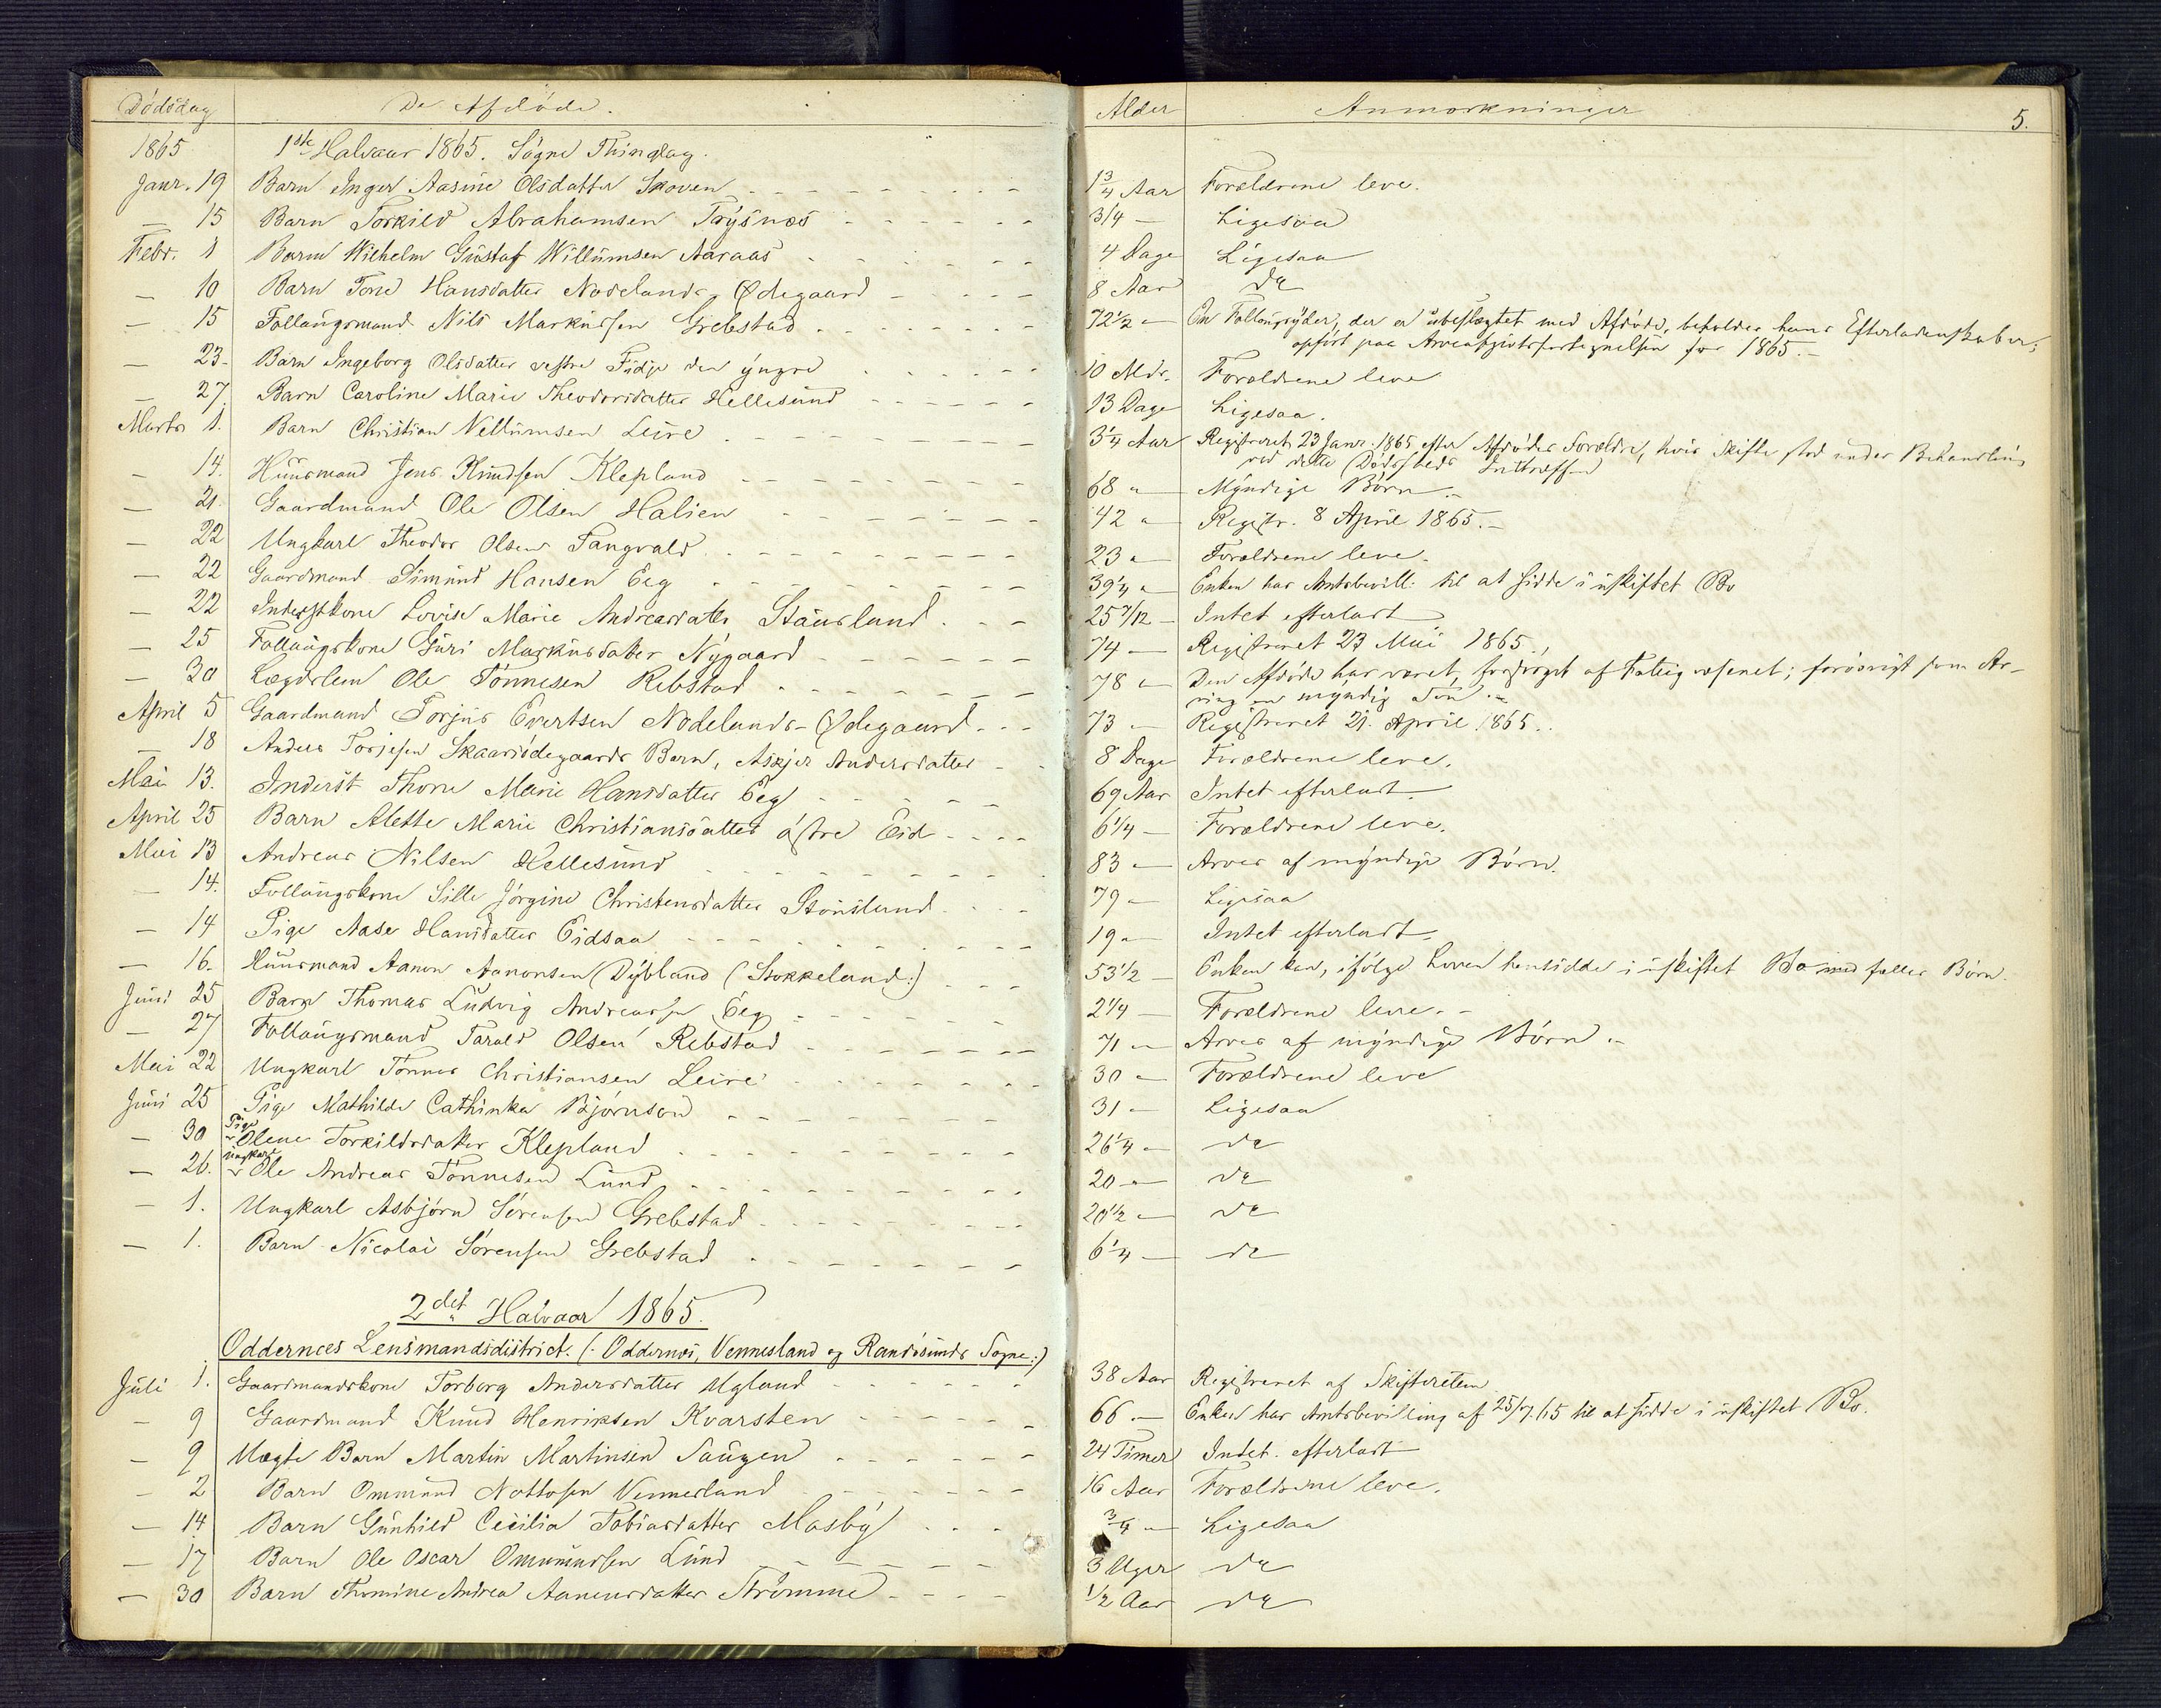 Dödsdag De Afdöde. Alder Anmærkninger 5.
1865 1ste Halvaar 1865. Sögne Thinglag.
Janr. 19 Barn Inger Aasine Olsdatter Skoven 1 3/4 Aar Forældrene leve.
— 15 Barn Torkild Abrahamsen Trysnæs 3/4 — Ligesaa
Febr. 1 Barn Wilhelm Gustaf Willumsen Aaraas 4 Dage Ligesaa
— 10 Barn Tone Hansdatter Nodelands Ødegaard 8 Aar do
— 15 Follaugsmand Nils Markussen Grebstad 72 1/2 — En Follougsyder, der er ubeslægtet med Afdöde, beholder hans Efterladenskaber;
opfört paa Arveafgiftsfortegnelsen for 1865.—
— 23. Barn Ingeborg Olsdatter vestre Fidje den yngre 10 Mdr. Forældrene leve
— 27. Barn Caroline Marie Theodorsdatter Hellesund 13 Dage Ligesaa.
Marts 1. Barn Christian Nellumsen Leire 3 1/4 Aar Registreret 23 Janr. 1865 efter Afdödes Forældre, hvis Skifte stod under Behandling
ved dette Dödsfalds Indtræffen
— 14. Huusmand Jens Knudsen Klepland 68 " — Myndige Börn.—
— 21. Gaardmand Ole Olsen Halien 42 " Registr. 8 April 1865.—
— 22 Ungkarl Theodor Olsen Tangvald 23 " — Forældrene leve.
— 22 Gaardmand Simund Hansen Eeg 39 1/4 " Enken har Amtsbevill. til at sidde i uskiftet Bo
— 22 Inderstkone Lovise Marie Andreasdatter Stausland 25 7/12 — Intet efterladt
— 25 Follaugskone Guri Markusdatter Nygaard 74 — Registreret 23 Mai 1865.
— 30 Lægdslem Ole Tönnesen Rebstad 78 " Den Afdöde har været forsörget af Fattigvæsenet; forövrigt som Ar-
ving en myndig Sön.—
April 5 Gaardmand Torjus Evertsen Nodelands-Ødegaard 73 — Registreret 21. April 1865.
— 18 Anders Torjesen Skaarsödegaards Barn, Askjer Andersdatter 8 Dage Forældrene leve.
Mai 13. Inderst Thore Marie Hansdatter Eeg 69 Aar Intet efterladt.
April 25 Barn Alette Marie Christiansdatter östre Eid 6 1/4 — Forældrene leve.
Mai 13 Andreas Nilsen Hellesund 83 — Arves af myndige Börn.
— 14. Follaugskone Sille Jörgine Christensdatter Stouslund 79 — Ligesaa
— 14 Pige Aase Hansdatter Eidsaa 19 " — Intet efterladt.
— 16. Huusmand Aanon Aanonsen Dybland (Stokkeland:) 53 1/2 — Enken kan, ifölge Loven hensidde i uskiftet Bo med fælles Börn.
Juni 25 Barn Thomas Ludvig Andreassen Eeg 2 1/4 — Forældrene leve.—
— 27 Follaugsmand Tarald Olsen Rebstad 71 — Arves af myndige Börn.—
Mai 22 Ungkarl Tönnes Christiansen Leire 30 — Forældrene leve
Juni 25 Pige Mathilde Cathinka Björnson 31 — Ligesaa
— 30 Pige Olene Torkildsdatter Klepland 26 1/4 " do
— 26. Ungkarl Ole Andreas Tönnesen Lund 20 — do
— 1. Ungkarl Asbjörn Sörensen Grebstad 20 1/2 — do
— 1. Barn Nicolai Sörensen Grebstad 6 1/4 — do
2det Halvaar 1865.
Oddernæs Lensmandsdistrict. (: Oddernæs, Vennesland og Randösunds Sogne:)
Juli 1. Gaardmandskone Torborg Andersdatter Ugland 38 Aar Registreret af Skifteretten
— 9 Gaardmand Knud Henriksen Kvarsten 66. — Enken har Amtsbevilling af 25/7. 65 til at sidde i uskiftet Bo.
— 9 Uægte Barn Martin Martinsen Saugen 24 Timer Intet efterladt
— 2 Barn Ommund Nottosen Vennesland 16 Aar Forældrene leve.
— 14 Barn Gunhild Cecilia Tobiasdatter Mosby 3/4 — Ligesaa
— 17 Barn Ole Oscar Ommundsen Lund 3 Uger do
— 30 Barn Thomine Andrea Aanensdatter Strömme 1/2 Aar do